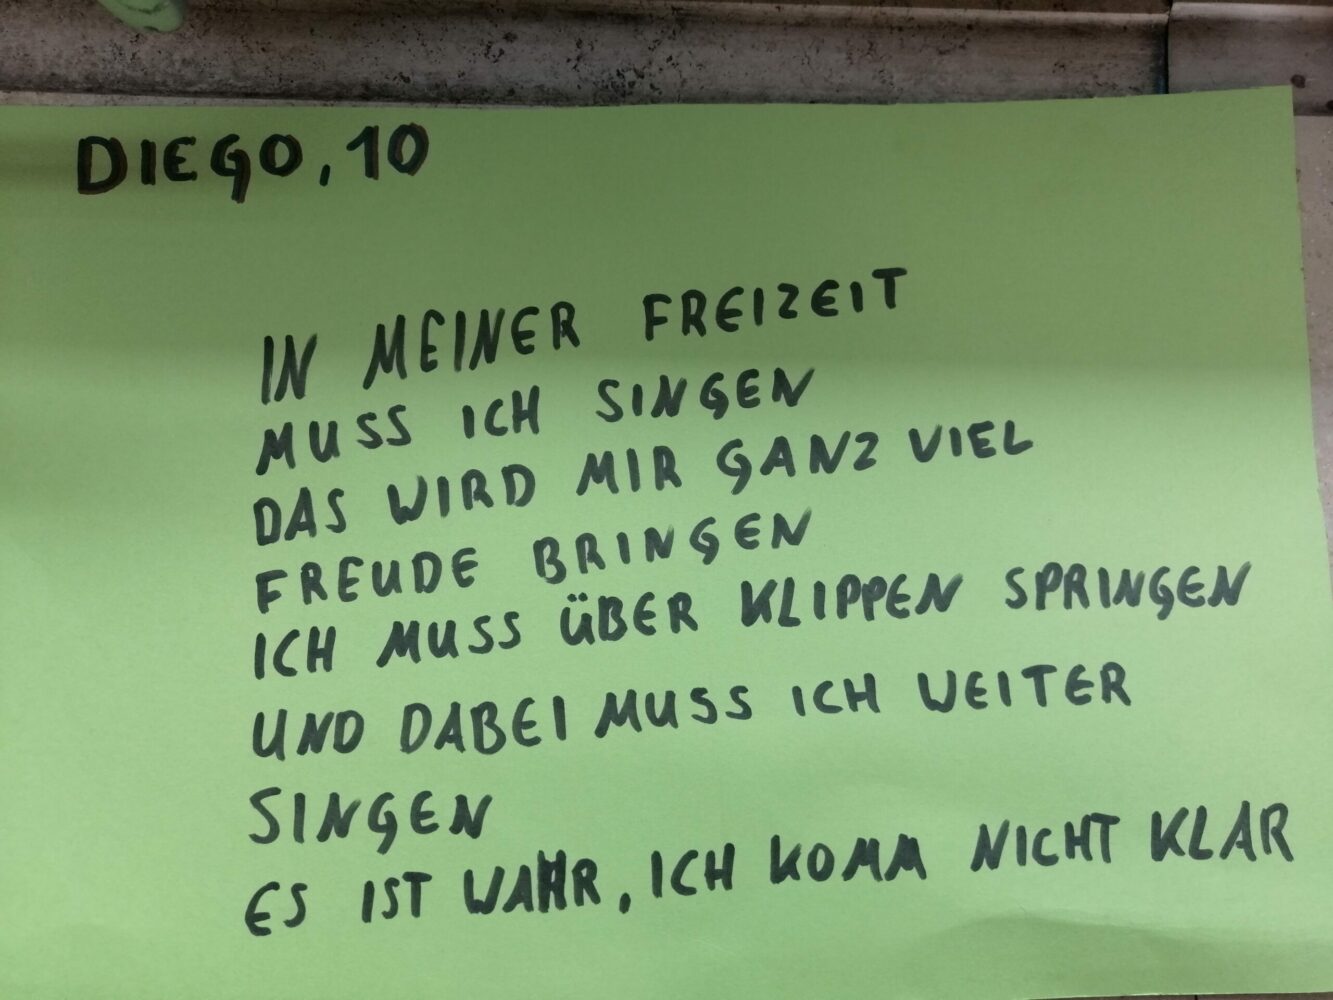 DIEGO, 10
IN MEINER FREIZEIT
MUSS ICH SINGEN
DAS WIRD MIR GANZ VIEL
FREUDE BRINGEN
ICH MUSS ÜBER KLIPPEN SPRINGEN
UND DABEI MUSS ICH WEITER
SINGEN
ES IST WAHR, ICH KOMM NICHT KLAR